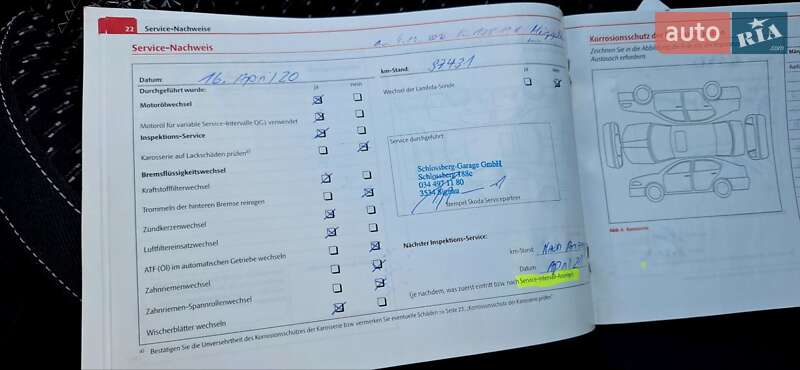 22
Service-Nachweise
Service-Nachweis
Datum: 16. April 20
km-Stand: 37431
Durchgeführt wurde:
ja
nein
ja
nein
Motorölwechsel
Wechsel der Lambda-Sonde
Motoröl für variable Service-Intervalle QG1 verwendet
Inspektions-Service
Karosserie auf Lackschäden prüfen a)
Bremsflüssigkeitswechsel
Kraftstofffilterwechsel
Trommeln der hinteren Bremse reinigen
Zündkerzenwechsel
Luftfiltereinsatzwechsel
ATF (Öl) im automatischen Getriebe wechseln
Zahnriemenwechsel
Zahnriemen-Spannrollenwechsel
Wischerblätter wechseln
Service durchgeführt:
Schlossberg-Garage GmbH
Schlossberg 188c
034 497 11 80
3534 Signau
Stempel Škoda Servicepartner
Nächster Inspektions-Service:
km-Stand: Nach
Datum: April 2
(je nachdem, was zuerst eintritt bzw. nach Service-Intervall-Anzeige)
a) Bestätigen Sie die Unversehrtheit des Korrosionsschutzes der Karosserie bzw. vermerken Sie eventuelle Schäden >> Seite 23, „Korrosionsschutz der Karosserie prüfen“.
Korrosionsschutz de
Zeichnen Sie in die Abbildung
Austausch erfordern.
Abb. 4 Karosserie
auto RIA .com